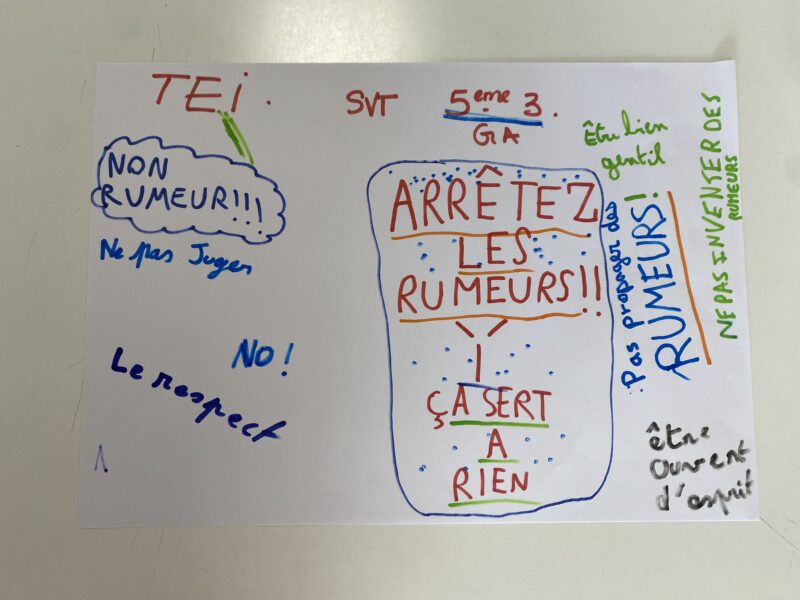 TEi.
SVT 5eme 3.
GA
NON
RUMEUR!!!
Ne pas Juger
NO!
Le respect
ARRÊTEZ
LES
RUMEURS!!
ÇA SERT
A
RIEN
Être bien
gentil
Pas propager des
RUMEURS!
NE PAS INVENTER DES
RUMEURS
être
Ouvert
d'esprit